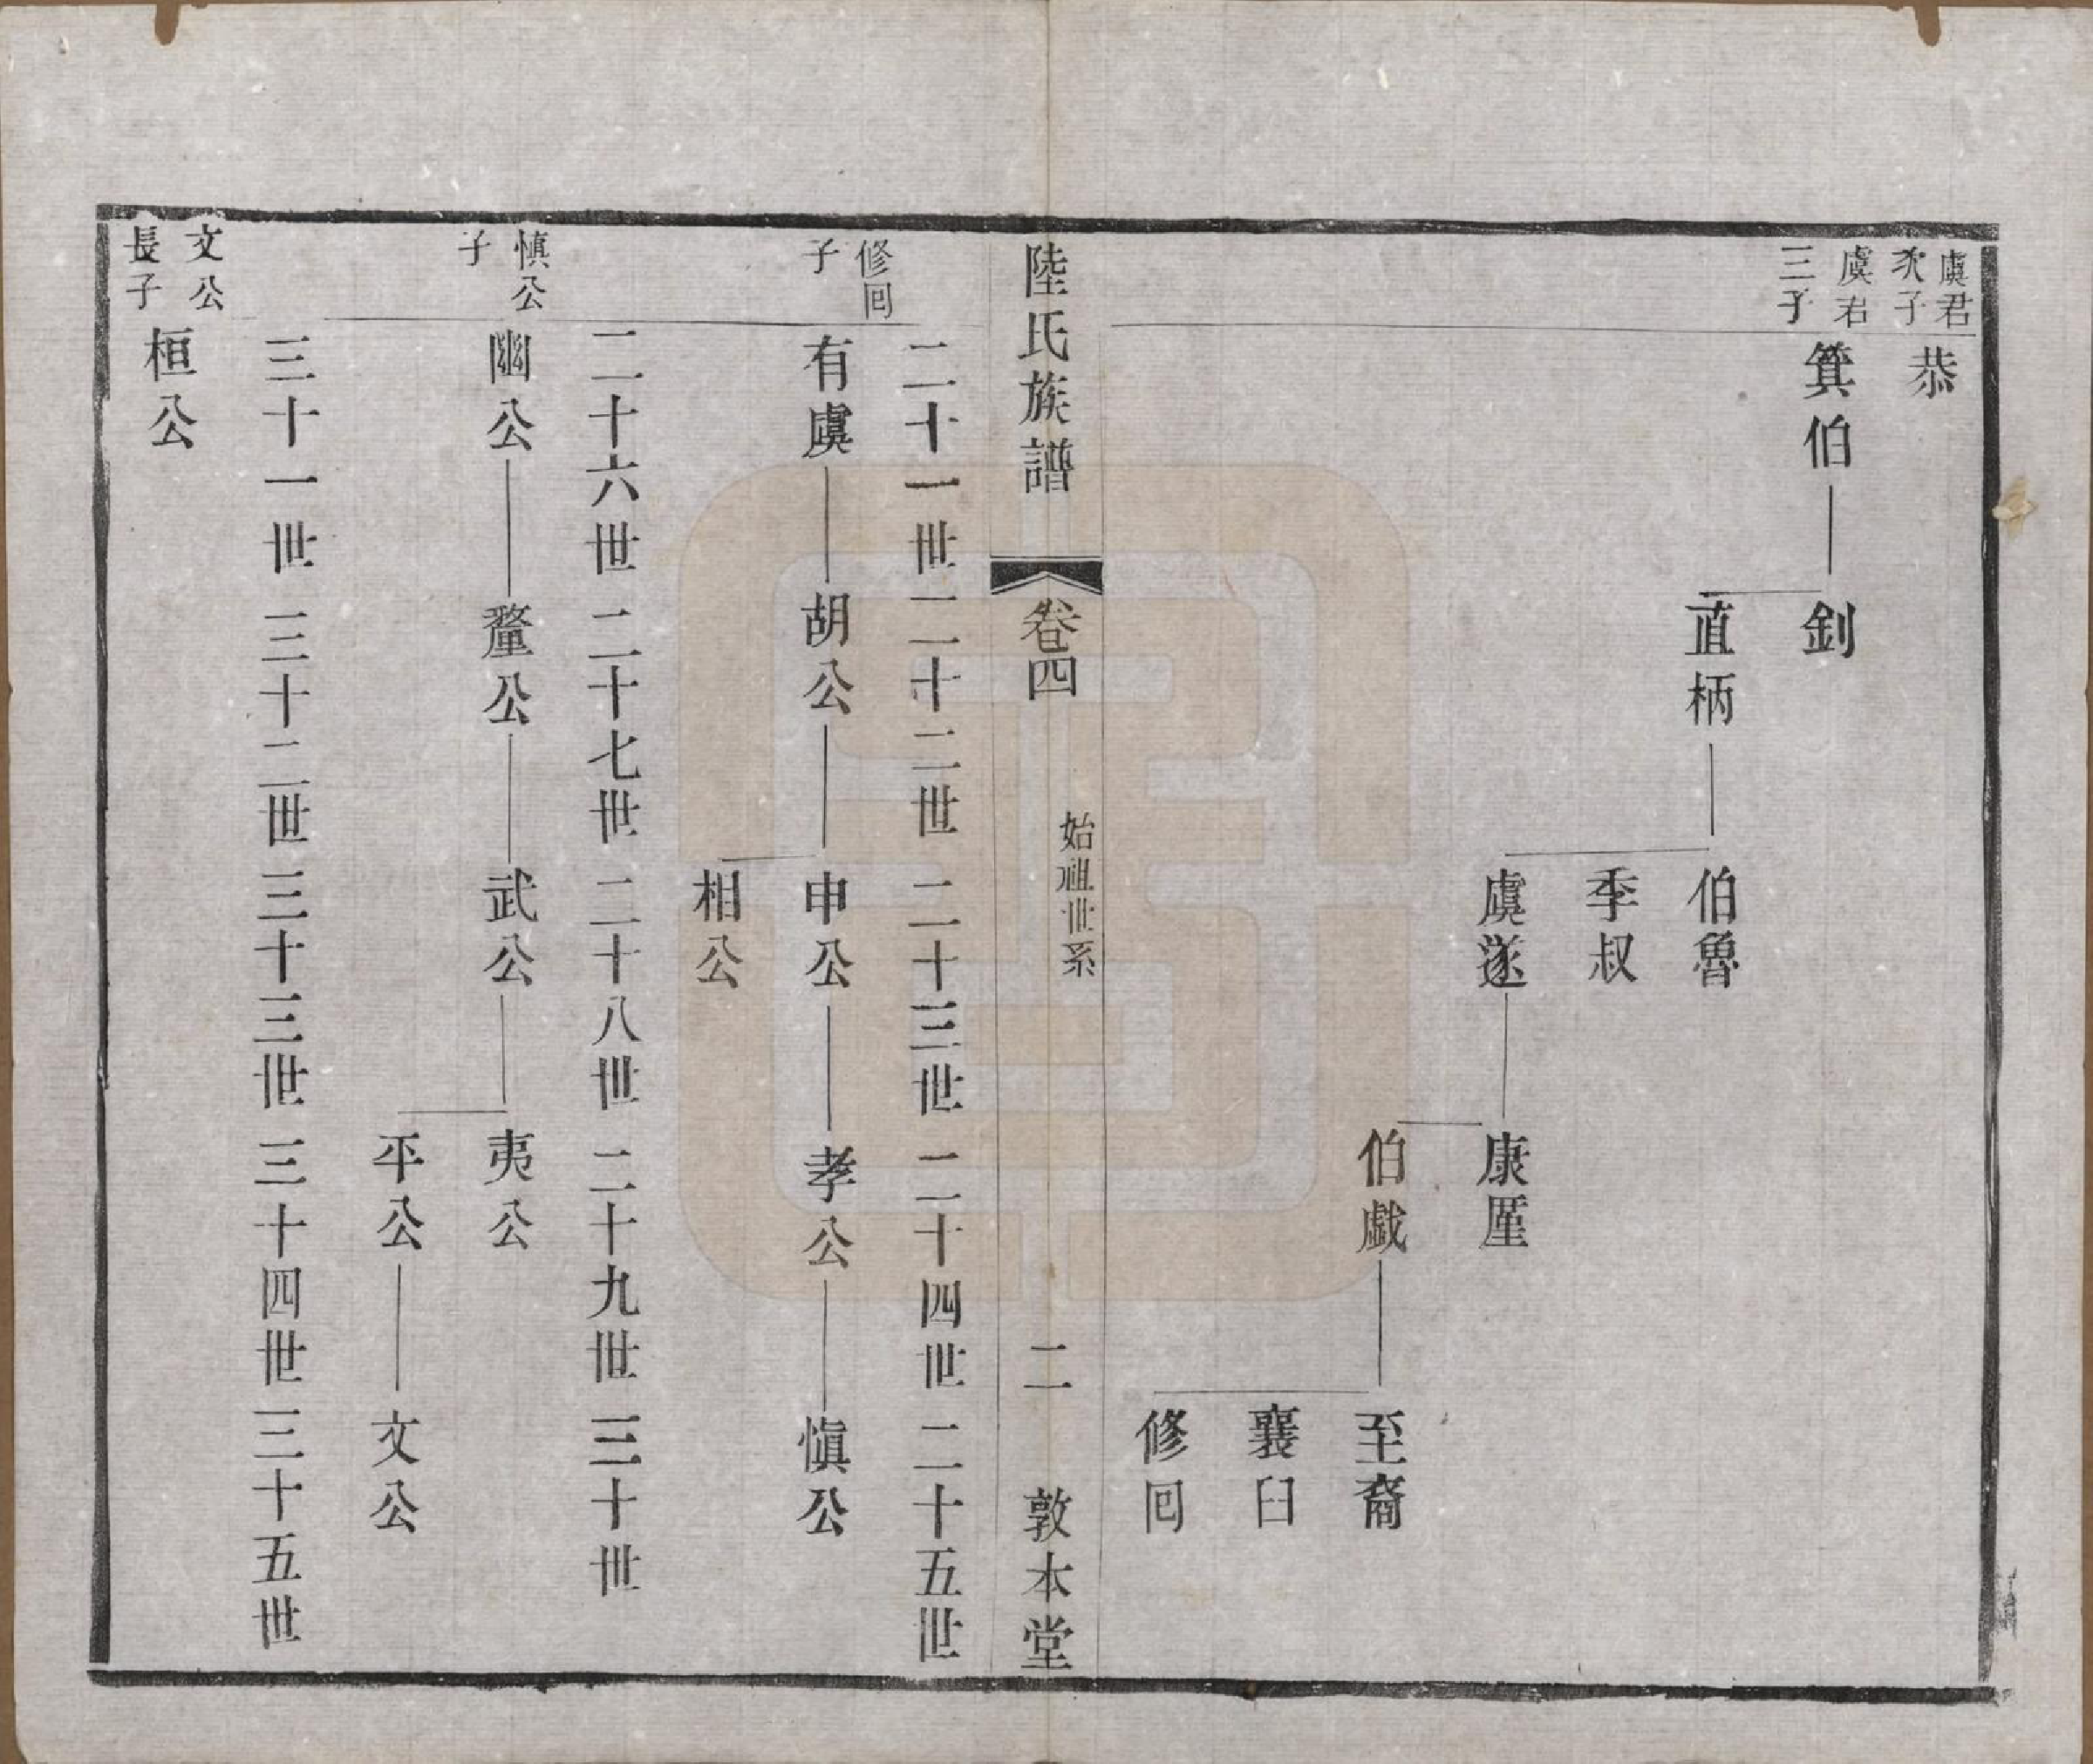 虞君次子
恭
虞君三子
箕伯 釗
直柄 伯魯
季叔
虞遂 康厔
伯戯 至裔
襄臼
修囘
陸氏族譜 卷四 始祖世系 二 敦本堂
二十一世 二十二世 二十三世 二十四世 二十五世
修囘子
有虞 胡公 申公 孝公 愼公
相公
二十六世 二十七世 二十八世 二十九世 三十世
愼公子
幽公 釐公 武公 夷公
平公 文公
三十一世 三十二世 三十三世 三十四世 三十五世
文公長子
桓公